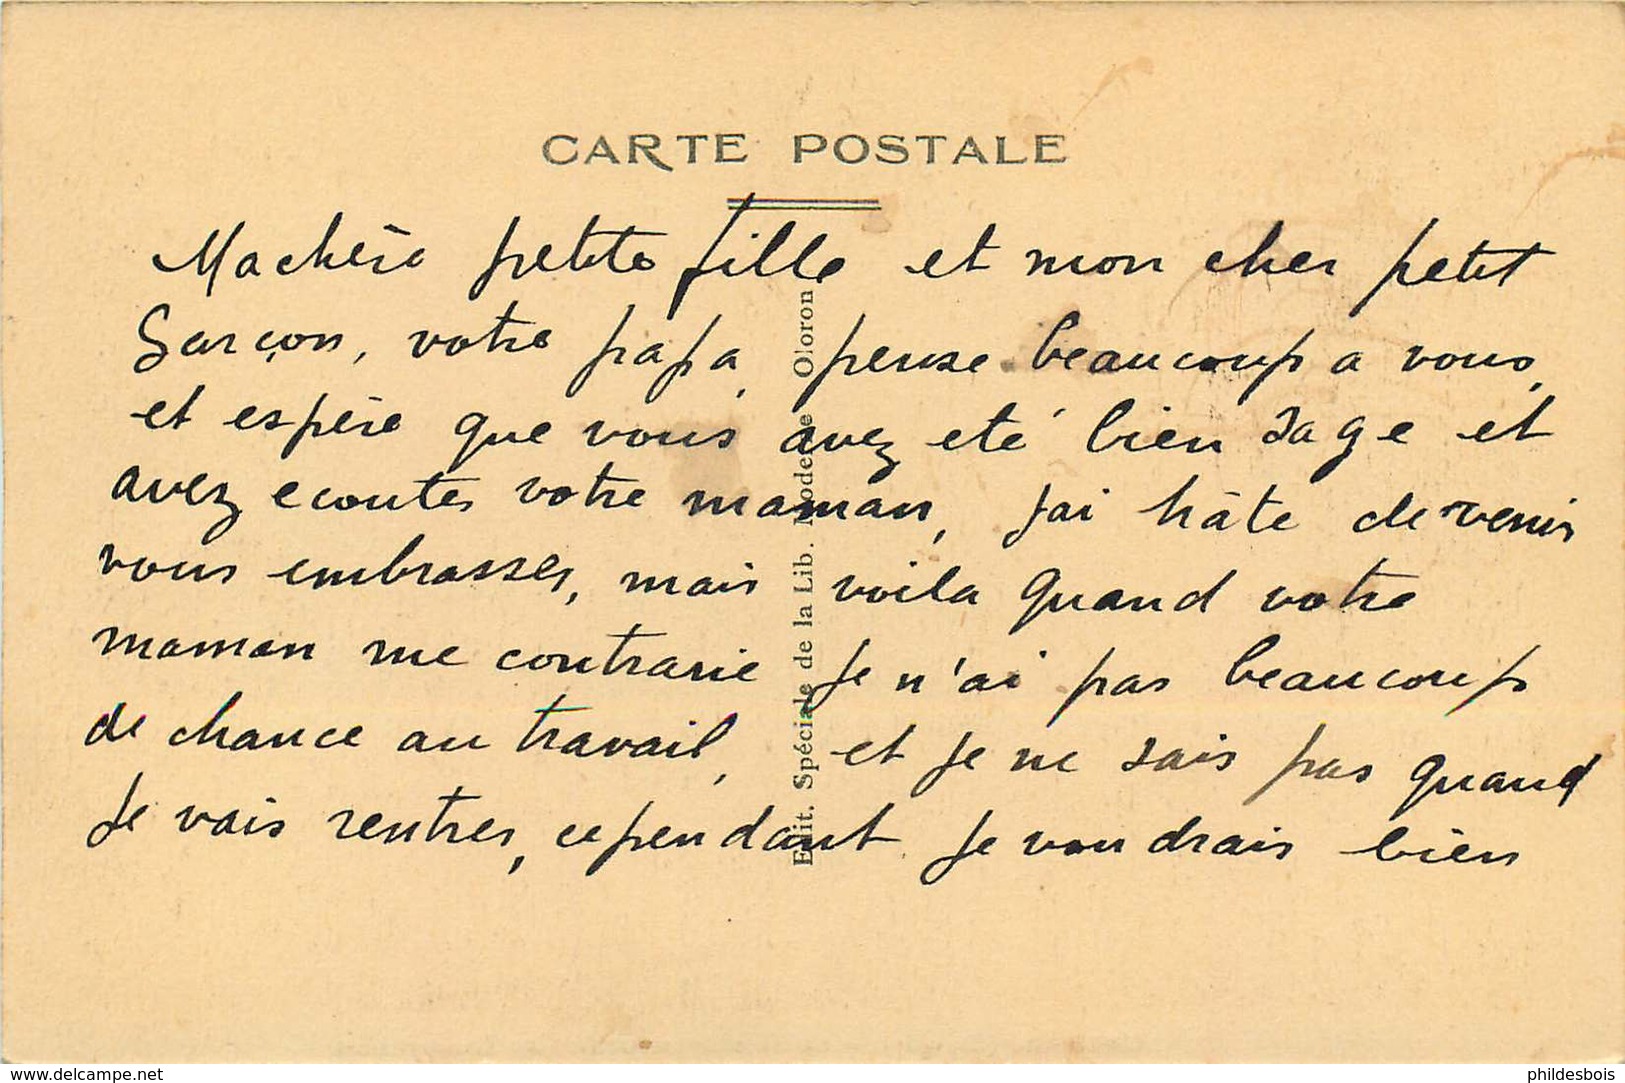 CARTE POSTALE
Ma chère petite fille et mon cher petit
Garçon, votre papa pense beaucoup a vous,
et espère que vous avez eté bien sage et
avez ecouter votre maman, j'ai hâte de venir
vous embrasser, mais voila quand votre
maman me contrarie je n'ai pas beaucoup
de chance au travail, et je ne sais pas quand
je vais rentrer, cependant je voudrais bien
Edit. Spéciale de la Lib. Moderne Oloron
www.delcampe.net
phildesbois